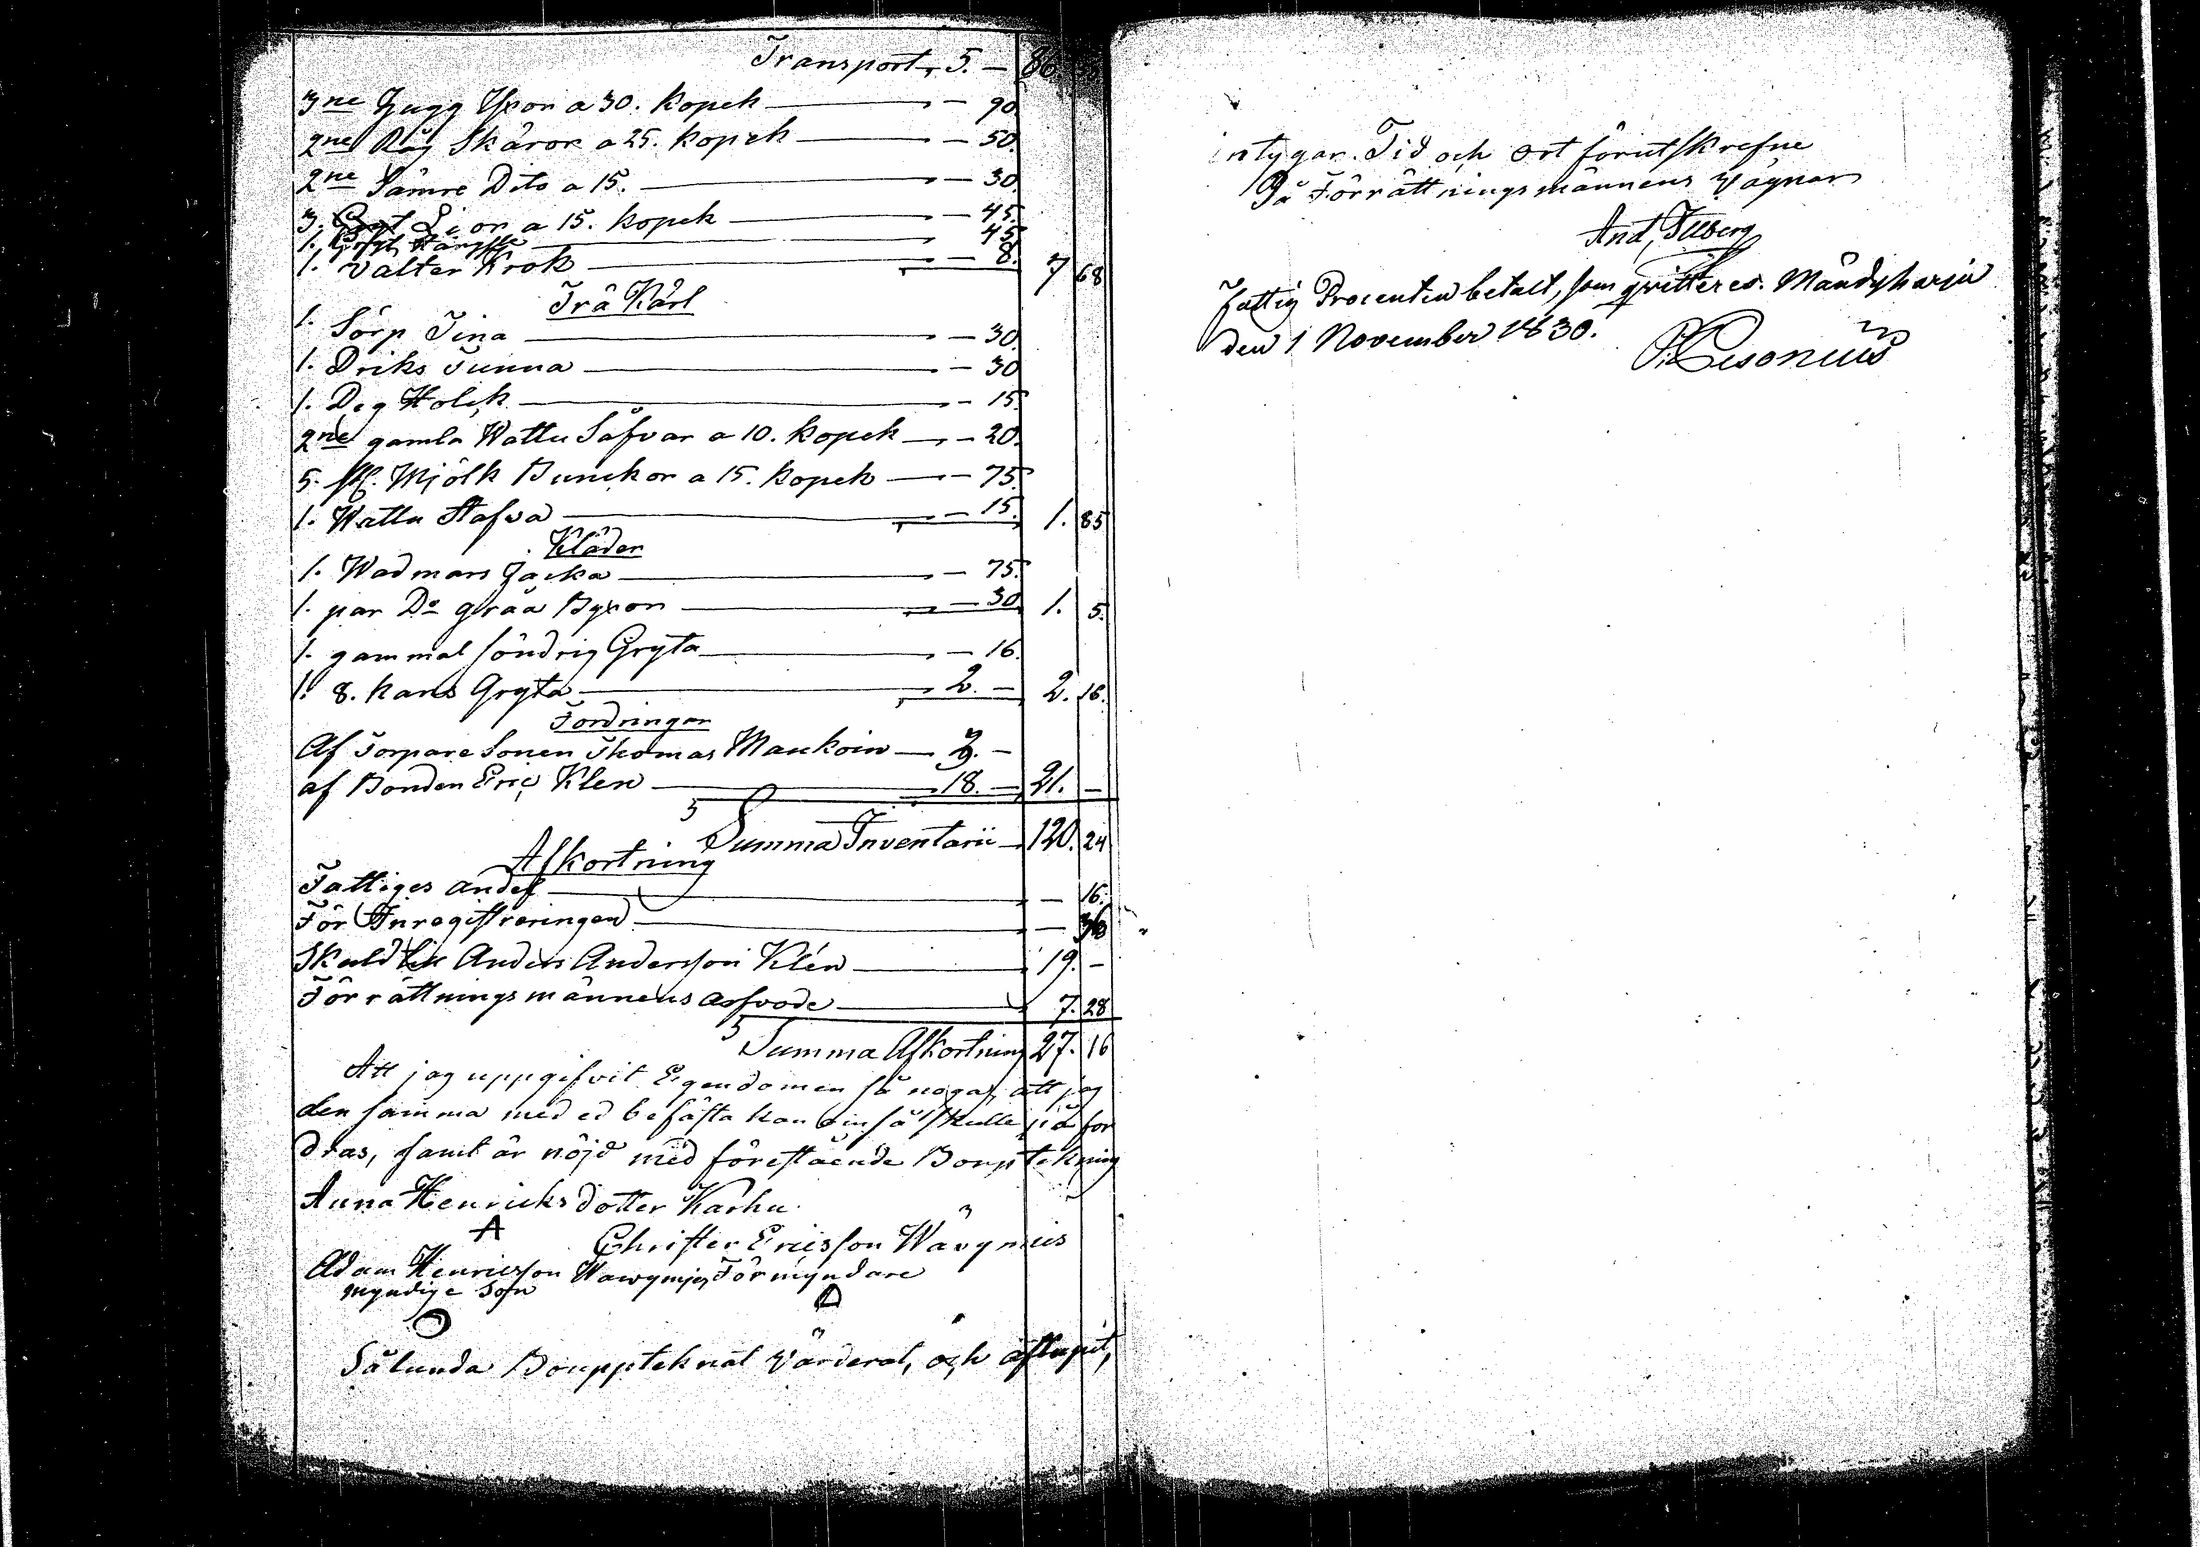 Transport, 5. — 86
3ne Hugg Yxor a 30. kopek — 90
2ne Råg Skäror a 25. kopek — 50.
2ne Sämre Dito a 15. — 30
3. Lior a 15. kopek — 45.
1. — 45
1. Valter Krok — 8. 7 68
Trä Kärl
1. Sörp Tina — 30
1. Driks Tunna — 30
1. Deg Holck — 15
2ne gamla Wattu Såfvar a 10. kopek — 20.
5. st. Mjölk Bunckor a 15. kopek — 75.
1. Wattu Stafva — 15. 1. 85
Kläder
1. Wadmars Jacka — 75.
1. par Do gråa Byxor — 30 1. 5.
1. gammal söndrig Gryta — 16.
1. 8. kans Gryta — 2. — 2. 16.
Fordringar
Af Torpare Sonen Thomas Maukoin — 3. —
af Bonden Eric Klen — 18. — 21. —
Summa Inventarii — 120. 24
Afkortning
Fattiges andel — 16.
För Inregistreringen —
Skuld till Anders Andersson Klén — 19. —
Förrättningsmännens arfvode — 7. 28
Summa Afkortning 27. 16
Att jag uppgifvit Egendomen så noga, att jag
den samma med ed befästa kan om så skulle på for
dras, samt är nöjd med förestående Boupptekning
Anna Henricksdotter Karhu
A Christer Ericsson Wäymies
Adam Henricsson Wawymies Förmyndare
myndige Son
Sålunda Bouppteknat värderat, och aflupit,
intygar. Tid och ort förutskrefne
På Förrättningsmännens vägnar
And, Tilberg
Fattig Procenten betalt, som qvitteres. Mändyharju
den 1 November 1830.